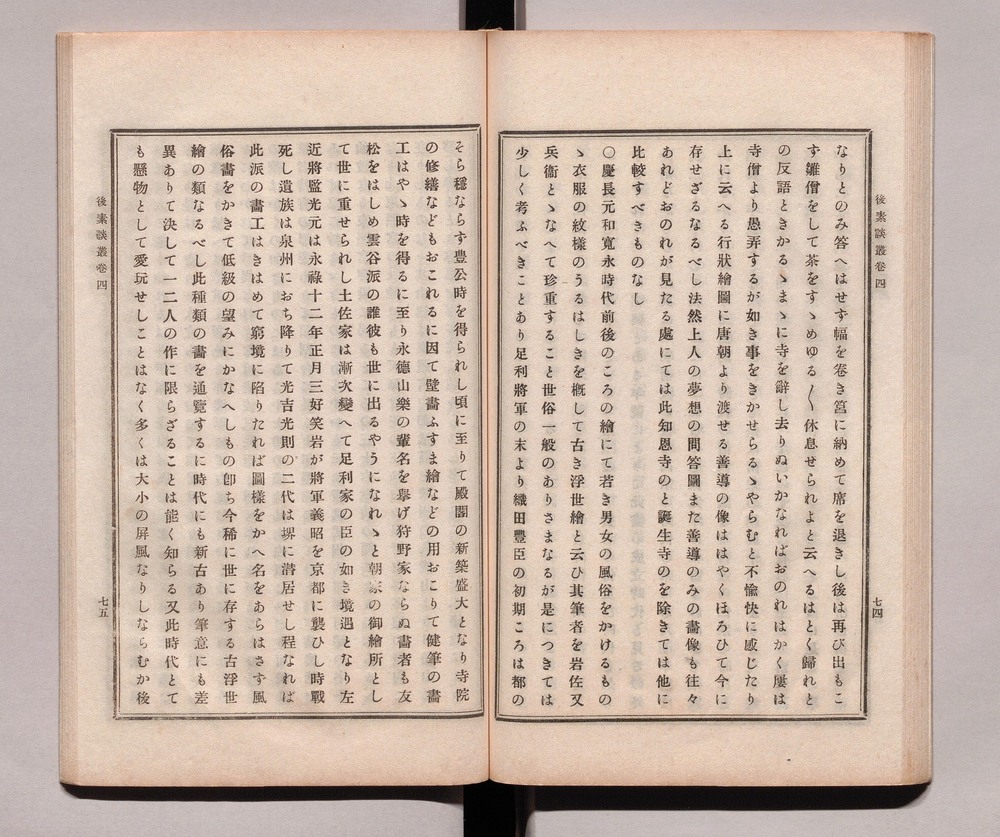 後素談叢卷四
七四
なりとのみ答へはせす幅を卷き筥に納めて席を退きし後は再び出もこ
す雛僧をして茶をすゝめゆる〳〵休息せられよと云へるはとく歸れと
の反語ときかるゝまゝに寺を辭し去りぬいかなればおのれはかく屢は
寺僧より愚弄するが如き事をきかせらるゝやらむと不愉快に感じたり
上に云へる行狀繪圖に唐朝より渡せる善導の像ははやくほろひて今に
存せざるなるべし法然上人の夢想の問答圖また善導のみの畫像も往々
あれどおのれが見たる處にては此知恩寺のと誕生寺のを除きては他に
比較すべきものなし
〇慶長元和寬永時代前後のころの繪にて若き男女の風俗をかけるもの
ゝ衣服の紋樣のうるはしきを概して古き浮世繪と云ひ其筆者を岩佐又
兵衞とゝなへて珍重すること世俗一般のありさまなるが是につきては
少しく考ふべきことあり足利將軍の末より織田豐臣の初期ころは都の
そら穩ならす豊公時を得られし頃に至りて殿閣の新築盛大となり寺院
の修繕などもおこれるに因て壁畵ふすま繪などの用おこりて健筆の畵
工はやゝ時を得るに至り永德山樂の輩名を擧げ狩野家ならぬ畵者も友
松をはしめ雲谷派の誰彼も世に出るやうになれゝと朝家の御繪所とし
て世に重せられし土佐家は漸次變へて足利家の臣の如き境遇となり左
近將監光元は永祿十二年正月三好笑岩が將軍義昭を京都に襲ひし時戰
死し遺族は泉州におち降りて光吉光則の二代は堺に潜居せし程なれば
此派の畵工はきはめて窮境に陷りたれば圖樣をかへ名をあらはさす風
俗畵をかきて低級の望みにかなへしもの卽ち今稀に世に存する古浮世
繪の類なるべし此種類の畵を通覽するに時代にも新古あり筆意にも差
異ありて決して一二人の作に限らざることは能く知らる又此時代とて
も懸物として愛玩せしことはなく多くは大小の屏風なりしならむか後
後素談叢卷四
七五